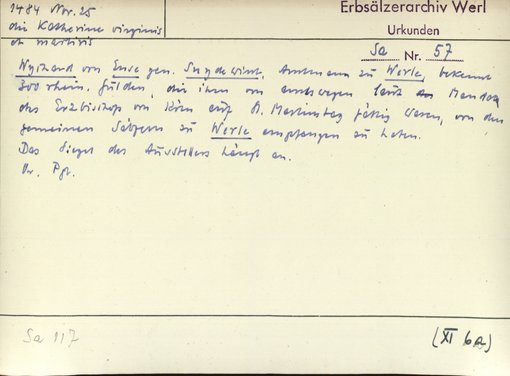 1484 Nov. 25
die Katherine virginis
et martiris
Erbsälzerarchiv Werl
Urkunden
Sa Nr. 57
Wychard von Ense gen. Snydewint, Amtmann zu Werle, bekennt
300 rhein. Gulden, die ihm von amtswegen laut Mandat
des Erzbischofs von Köln auf St. Martinstag fällig waren, von den
gemeinen Sälzern zu Werle empfangen zu haben.
Das Siegel des Ausstellers hängt an.
Or. Pgt.
Sa 117
(XI 6a)